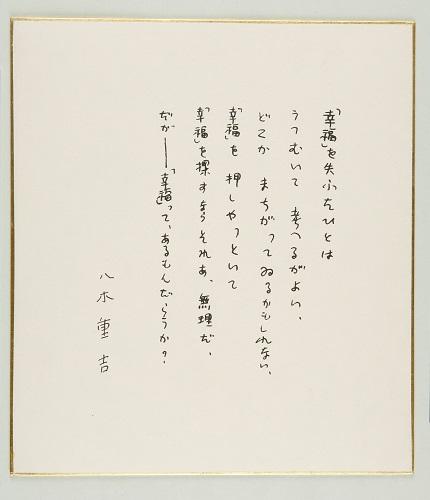 「幸福」を失ふたひとは
うつむいて 考へるがよい、
どこか まちがってゐるかもしれない、
「幸福」を 押しやっといて
「幸福」を探すならそれあ、無理だ、
だが──「幸福」って、あるもんだらうか?
八木重吉